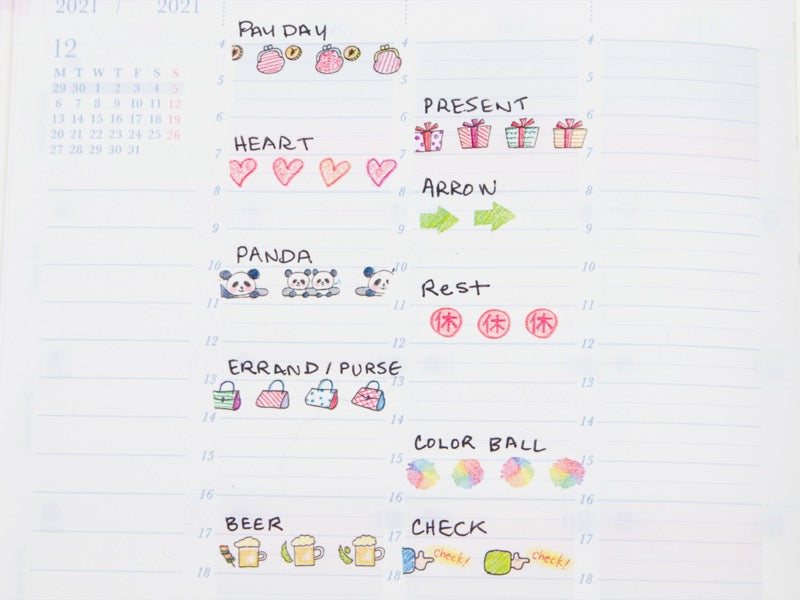 2021 / 2021
12
M T W T F S S
29 30 1 2 3 4 5
6 7 8 9 10 11 12
13 14 15 16 17 18 19
20 21 22 23 24 25 26
27 28 29 30 31
PAY DAY
4
5
6
HEART
7
8
9
PANDA
10
11
12
ERRAND / PURSE
13
14
15
16
BEER
17
18
4
5
PRESENT
6
7
ARROW
8
9
10
Rest
11
休 休 休
12
13
14
COLOR BALL
15
16
CHECK
17
check! check!
18
4
5
6
7
8
9
10
11
12
13
14
15
16
17
18